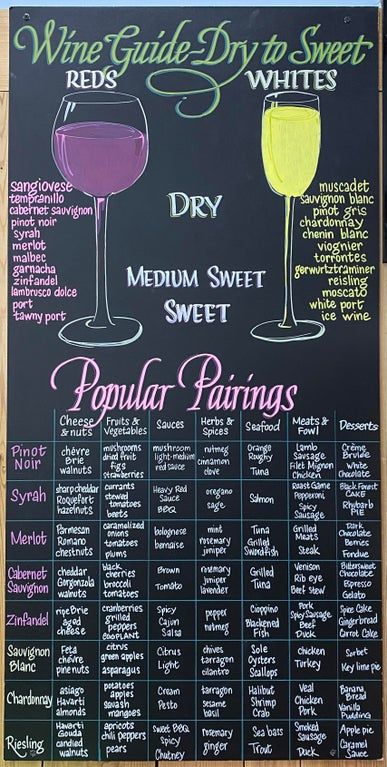 Wine Guide-Dry to Sweet
REDS
WHITES
DRY
MEDIUM SWEET
SWEET
sangiovese
tempranillo
cabernet sauvignon
pinot noir
syrah
merlot
malbec
garnacha
zinfandel
lambrusco dolce
port
tawny port
muscadet
sauvignon blanc
pinot gris
chardonnay
chenin blanc
viognier
torrontes
gerwurtztraminer
reisling
moscato
white port
ice wine
Popular Pairings
Cheese & nuts
Fruits & Vegetables
Sauces
Herbs & Spices
Seafood
Meats & Fowl
Desserts
Pinot Noir
chèvre
Brie
walnuts
mushrooms
dried fruit
figs
strawberries
mushroom
light-medium
red sauce
nutmeg
cinnamon
clove
Orange
Roughy
Tuna
Lamb
Sausage
Filet Mignon
Chicken
Crème
Brulée
White
Chocolate
Syrah
sharp cheddar
Roquefort
hazelnuts
currants
stewed
tomatoes
beets
Heavy Red
Sauce
BBQ
oregano
sage
Salmon
Roast Game
Pepperoni
Spicy
Sausage
Black Forest
CAKE
Rhubarb
PIE
Merlot
Parmesan
Romano
chestnuts
caramelized
onions
tomatoes
plums
bolognese
bernaise
mint
rosemary
juniper
Tuna
Grilled
Swordfish
Grilled
Meats
Steak
Dark
Chocolate
Berries
Fondue
Cabernet Sauvignon
cheddar
Gorgonzola
walnuts
black
cherries
broccoli
tomatoes
Brown
Tomato
rosemary
juniper
lavender
Grilled
Tuna
Venison
Rib eye
Beef Stew
Bittersweet
Chocolate
Espresso
Gelato
Zinfandel
ripe Brie
aged
cheese
cranberries
grilled
peppers
eggplant
Spicy
Cajun
Salsa
pepper
nutmeg
Cioppino
Blackened
Fish
Pork
Spicy Sausage
Beef
Duck
Spice Cake
Gingerbread
Carrot Cake
Sauvignon Blanc
Feta
chèvre
pine nuts
citrus
green apples
asparagus
Citrus
Light
chives
tarragon
cilantro
Sole
Oysters
Scallops
chicken
Turkey
Sorbet
Key lime pie
Chardonnay
asiago
Havarti
almonds
potatoes
apples
squash
mangoes
Cream
Pesto
tarragon
sesame
basil
Halibut
Shrimp
Crab
Veal
Chicken
Pork
Banana
Bread
Vanilla
Pudding
Riesling
Havarti
Gouda
candied
walnuts
apricots
chili peppers
pears
sweet BBQ
Spicy
Chutney
rosemary
ginger
Sea bass
Trout
Smoked
Sausage
Duck
Apple pie
Caramel
Sauce